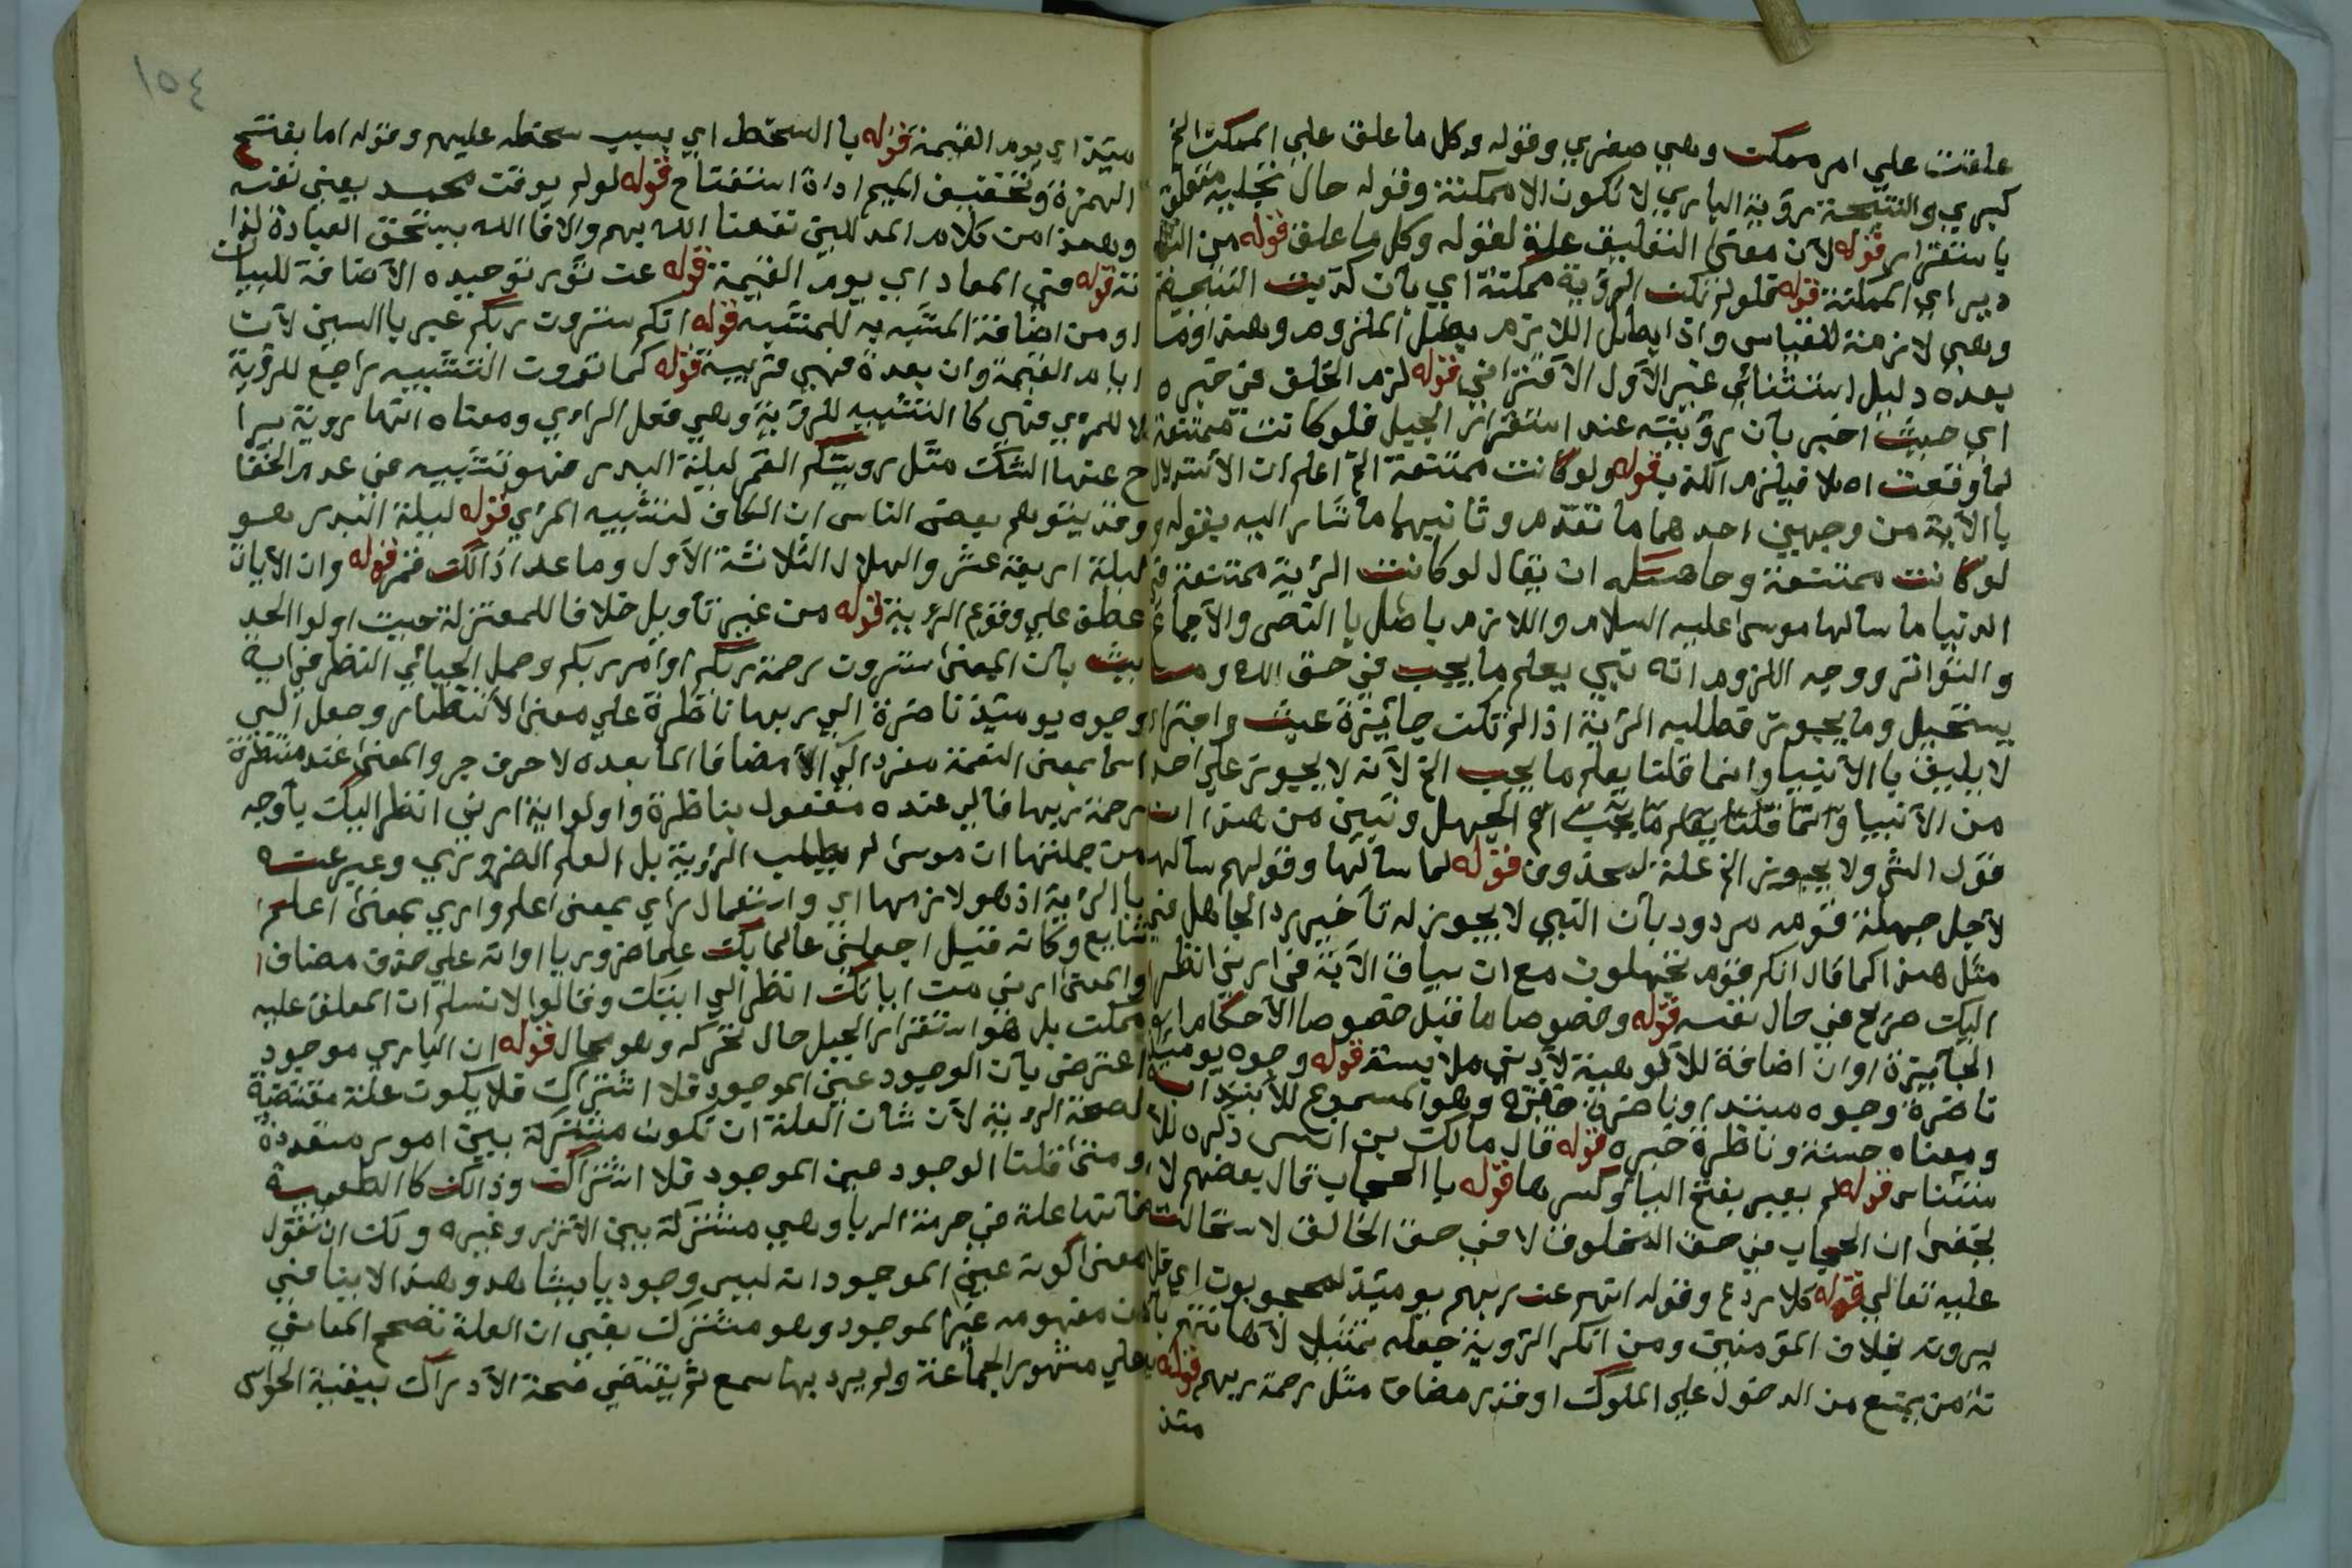 علقت على امر ممكن وهي صغري وقوله وكل ما علق على الممكن الخ
كبري والنتيجة رؤية الباري لا تكون الا ممكنة وقوله حال تجليه متعلق
باستقرار قوله لان معنى التعليق علة لقوله وكل ما علق قوله من
دير اي الممكنة قوله فلو لم تكن الرؤية ممكنة اي بان كذبت النتيجة
وهي لازمة للقياس واذا بطل اللازم بطل الملزوم وهذا وما
بعده دليل استثنائي غير الاول الاقتراني قوله لزم الخلف في خبره
اي حيث اخبر بان رؤيته عند استقرار الجبل فلو كانت ممتنعة
لما وقعت اصلا فيلزم الكذب قوله ولو كانت ممتنعة الخ اعلم ان الاستدلال
بالاية من وجهين احدهما ما تقدم وثانيهما ما اشار اليه بقوله و
لو كانت ممتنعة وحاصله ان يقال لو كانت الرؤية ممتنعة في
الدنيا ما سالها موسى عليه السلام واللازم باطل بالنص والاجماع
والتواتر ووجه اللزوم انه نبي يعلم ما يجب في حق الله وما
يستحيل وما يجوز فطلبه الرؤية اذا لم تكن جائزة عبث واجتراء
لا يليق بالانبيا وانما قلنا يعلم ما يجب الخ لانه لا يجوز على احد
من الانبيا وانما قلنا يعلم ما يجب الخ الجهل وتبين من هذا ان
قول الش ولا يجوز الخ علة لمحذوف قوله لما سالها وقولهم سالها
لاجل جهلة قومه مردود بان النبي لا يجوز له تاخير رد الجاهل في
مثل هذا كما قال انكم قوم تجهلون مع ان سياق الاية في ارني انظر
اليك صريح في حال نفسه قوله وخصوصا ما قبل خصوصا الاحكام اي
الجائزة او ان اضافة للالوهية لادنى ملابسة قوله وجوه يومئذ
ناضرة وجوه مبتدا وناضرة صفته وهو المسموع للابتدا به
ومعناه حسنة وناظرة خبره قوله قال مالك بن انس ذكره للا
ستئناس قوله لم يعير بفتح اليا وكسرها قوله بالحجاب قال بعضهم لا
يخفى ان الحجاب في حق المخلوق لا في حق الخالق لاستحالته
عليه تعالى قوله كلا ردع وقوله انهم عن ربهم يومئذ لمحجوبون اي فلا
يرونه بخلاف المؤمنين ومن انكر الرؤية جعله تمثيلا لاهانتهم باها
نة من يمنع من الدخول على الملوك او قدر مضاف مثل رحمة ربهم قوله يو
مئذ
١٥٤
مئذ اي يوم القيمة قوله بالسخط اي بسبب سخطه عليهم وقوله اما بفتح
الهمزة وتخفيف الميم اداة استفتاح قوله لو لم يوقن محمد يعني نفسه
وهذا من كلام المدللين نفعنا الله بهم والا فالله يستحق العبادة لذا
ته قوله في المعاد اي يوم القيمة قوله عن نور توحيده الاضافة للبيان
او من اضافة المشبه به للمشبه قوله انكم سترون ربكم عبر بالسين لان
ايام القيمة وان بعدة فهي قريبة قوله كما ترون التشبيه راجع للرؤية
لا للمرئي فهي كالتشبيه للرؤية وهي فعل الراءي ومعناه انها روية يزا
ح عنها الشك مثل رويتكم القمر ليلة البدر فهو تشبيه في عدم الخفا
وقد يتوهم بعض الناس ان الكاف لتشبيه المرئي قوله ليلة البدر هو
ليلة اربعة عشر والهلال الثلاثة الاول وما عدا ذالك قمر قوله وان الايات
عطف على وقوع الرؤية قوله من غير تاويل خلافا للمعتزلة حيث اولوا الحد
يث بان المعنى سترون رحمة ربكم او امر ربكم وحمل الجبائي النظر في اية
وجوه يومئذ ناضرة الى ربها ناظرة على معنى الانتظار وجعل الى
اسما بمعنى النعمة مفرد الآلاء مضافا لما بعده لا حرف جر والمعنى عنده منتظرة
رحمة ربها فالى عنده مفعول بناظرة واولوا اية ارني انظر اليك باوجه
من جملتها ان موسى لم يطلب الرؤية بل العلم الضروري وعبر عنه
بالرؤية اذ هو لازمها اي واستعمال راي بمعنى اعلم واري بمعنى اعلم
شايع وكانه قيل اجعلني عالما بك علما ضروريا او انه على حذف مضاف
والمعنى ارني من اياتك انظر الى ايتك وقالوا لا نسلم ان المعلق عليه
ممكن بل هو استقرار الجبل حال تحركه وهو محال قوله ان الباري موجود
اعترض بان الوجود عين الموجود فلا اشتراك فلا يكون علة مقتضية
لصحة الرؤية لان شان العلة ان تكون مشتركة بين امور متعددة
ومتى قلنا الوجود عين الموجود فلا اشتراك وذالك كالطعمية
فانها علة في حرمة الربا وهي مشتركة بين الارز وغيره ولك ان تقول
معنى كونه عين الموجود انه ليس وجوديا يشاهد وهذا لا ينافي
ان مفهومه غير الموجود وهو مشترك بقى ان العلة تصحح المعاني
على مشهور الجماعة ولم يرد بها سمع ثم يقتضي صحة الادراك ببقية الحواس